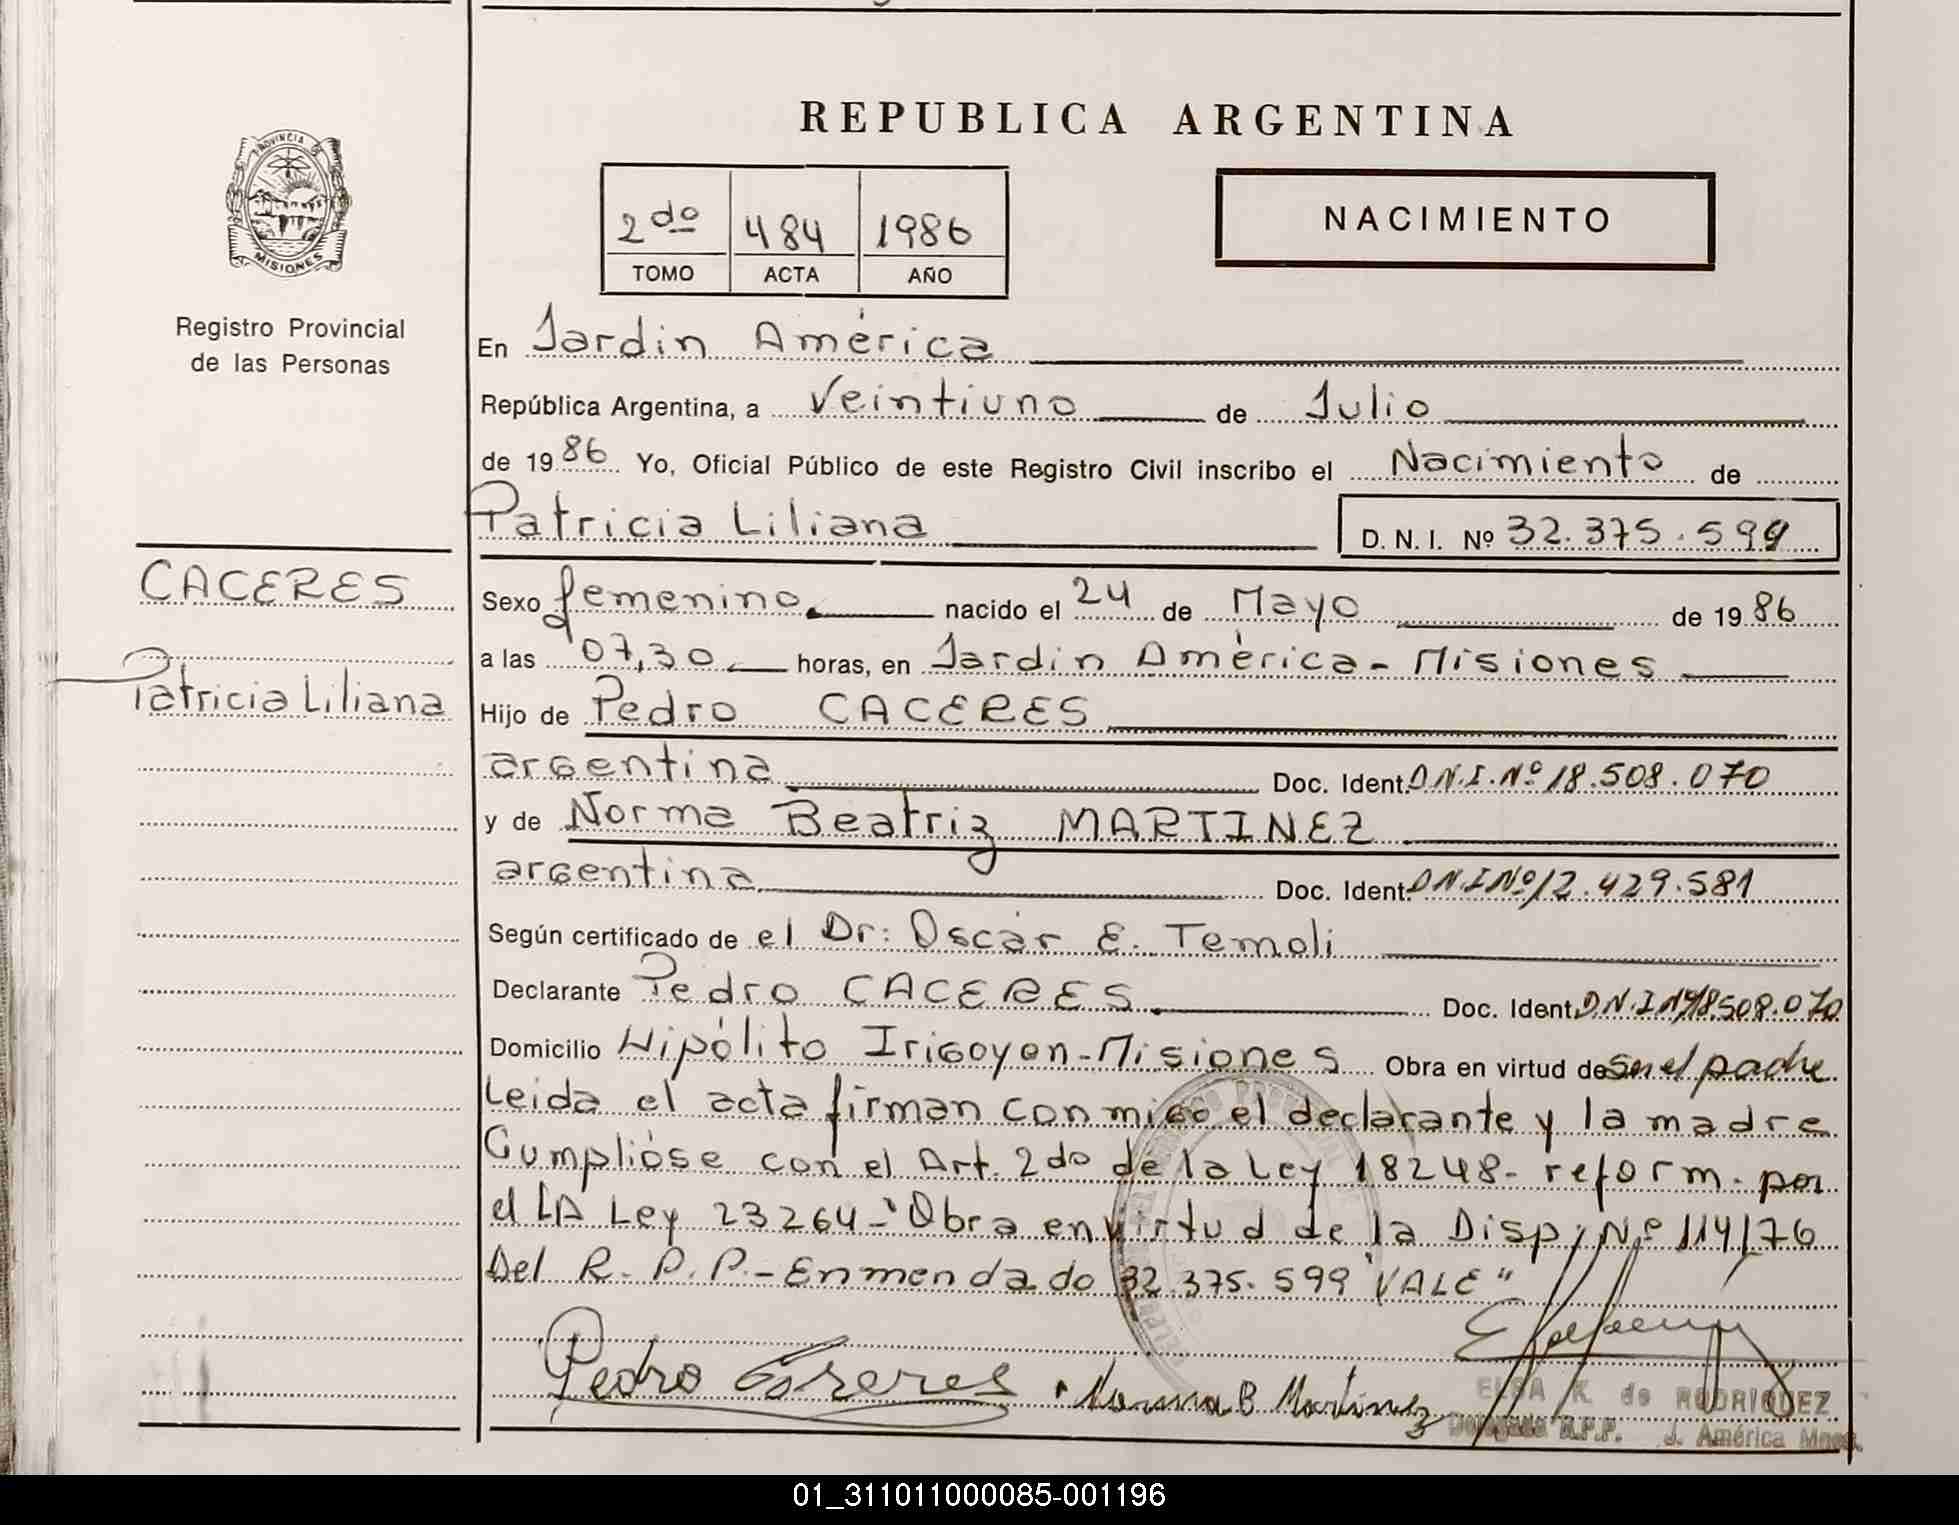 REPUBLICA ARGENTINA
PROVINCIA D
MISIONES
Registro Provincial
de las Personas
2do 484 1986
TOMO ACTA AÑO
NACIMIENTO
En Jardin América
República Argentina, a Veintiuno de Julio
de 1986 Yo, Oficial Público de este Registro Civil inscribo el Nacimiento de
Patricia Liliana D. N. I. Nº 32.375.599
CACERES
Patricia Liliana
Sexo femenino nacido el 24 de Mayo de 1986
a las 07,30 horas, en Jardin América - Misiones
Hijo de Pedro CACERES
argentina Doc. Ident. D.N.I. Nº 18.508.070
y de Norma Beatriz MARTINEZ
argentina Doc. Ident. D.N.I Nº 12.429.581
Según certificado de el Dr: Oscar E. Temoli
Declarante Pedro CACERES Doc. Ident. D.N.I Nº 18.508.070
Domicilio Hipólito Irigoyen - Misiones Obra en virtud de Ser el padre
Leida el acta firman conmigo el declarante y la madre
Cumplióse con el Art. 2do de la Ley 18248 - reform. por
el LA Ley 23264 - Obra en virtud de la Disp. Nº 114/76
Del R. P. P. - Enmendado 32.375.599 "VALE"
Pedro Caceres Norma B Martinez
ELSA K. de RODRIGUEZ
Delegada R.P.P. J. América Mnes.
01_311011000085-001196